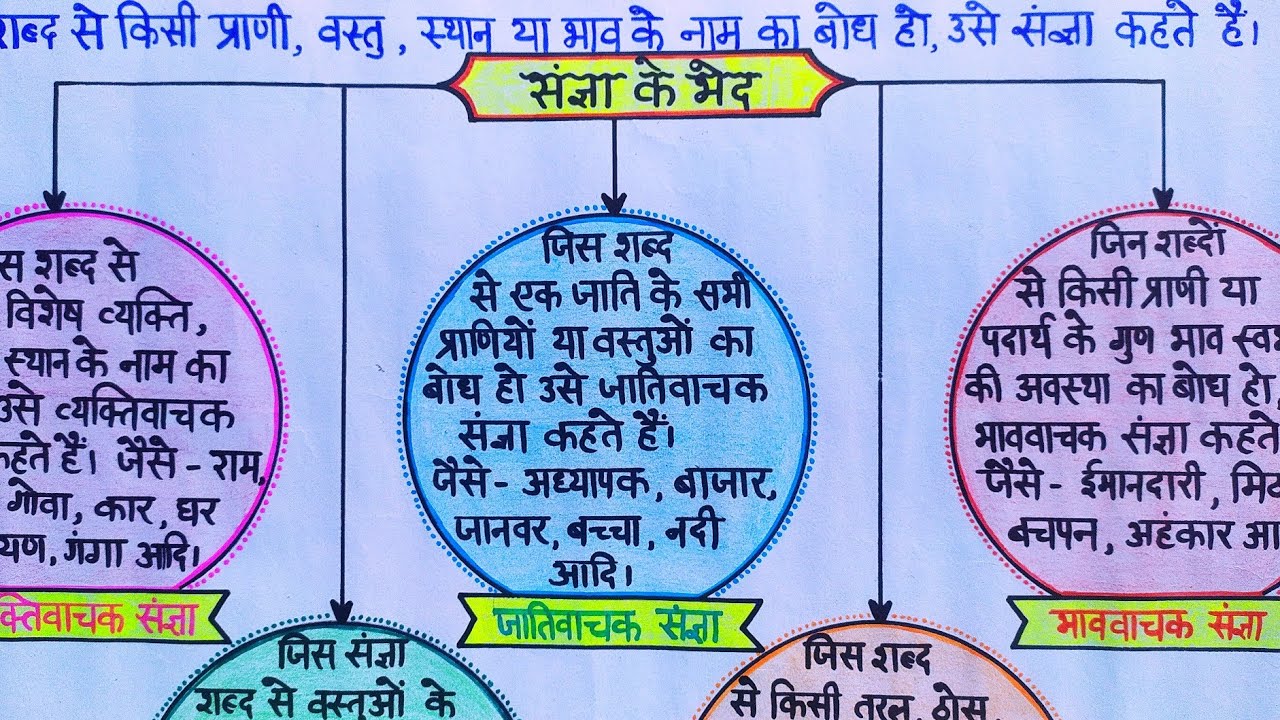 शब्द से किसी प्राणी, वस्तु, स्थान या भाव के नाम का बोध हो, उसे संज्ञा कहते हैं।
संज्ञा के भेद
शब्द से
विशेष व्यक्ति,
स्थान के नाम का
उसे व्यक्तिवाचक
कहते हैं। जैसे - राम,
गोवा, कार, घर
यण, गंगा आदि।
क्तिवाचक संज्ञा
जिस शब्द
से एक जाति के सभी
प्राणियों या वस्तुओं का
बोध हो उसे जातिवाचक
संज्ञा कहते हैं।
जैसे - अध्यापक, बाजार,
जानवर, बच्चा, नदी
आदि।
जातिवाचक संज्ञा
जिन शब्दों
से किसी प्राणी या
पदार्थ के गुण भाव
की अवस्था का बोध हो,
भाववाचक संज्ञा कहते
जैसे - ईमानदारी,
बचपन, अहंकार
भाववाचक संज्ञा
जिस संज्ञा
शब्द से वस्तुओं के
जिस शब्द
से किसी तरल, ठोस,